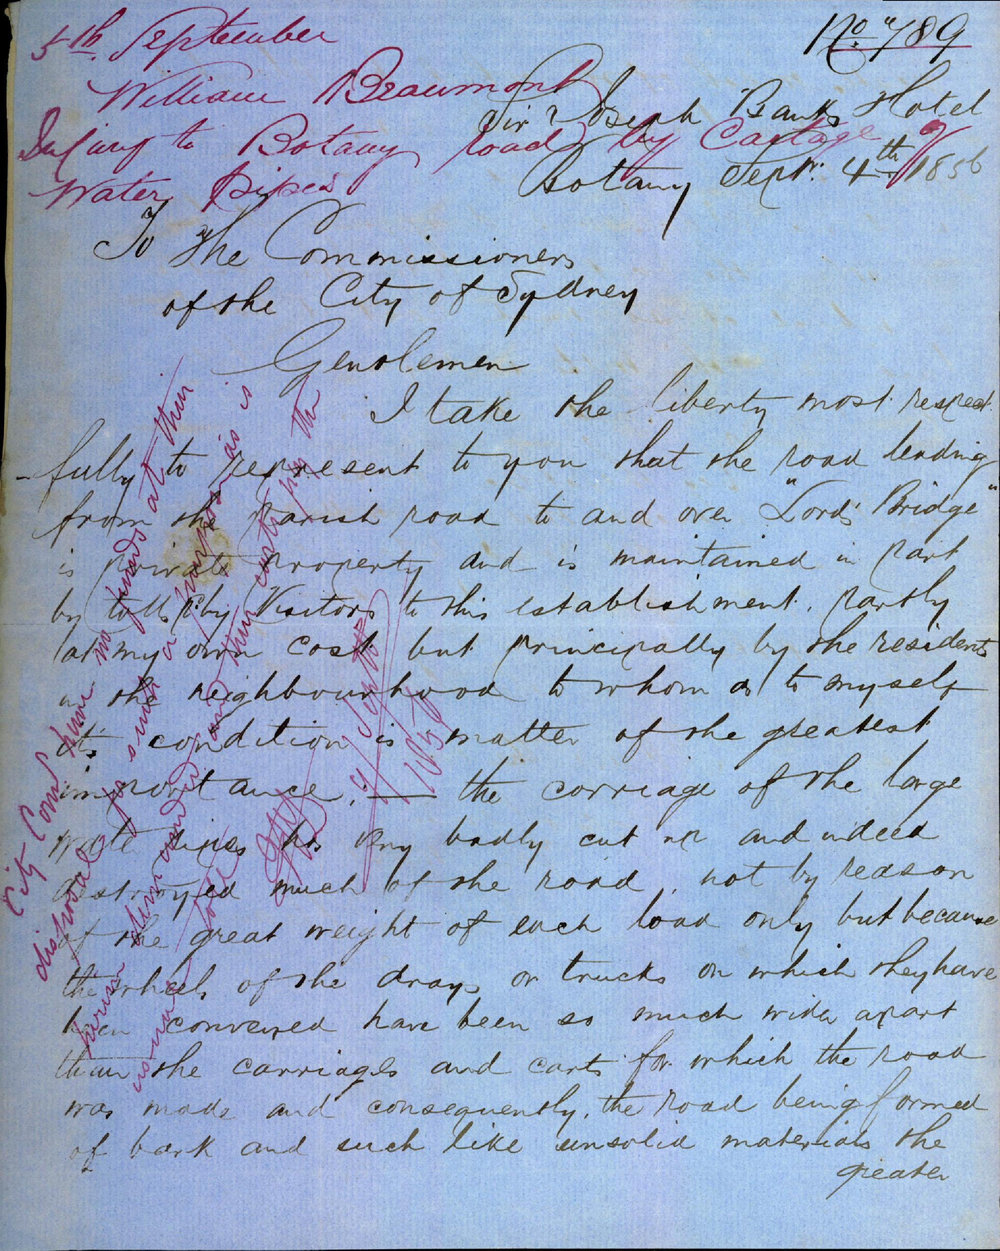 No. 789
5th September
William Beaumont
Injury to Botany road by Cartage of
Water pipes
Sir Joseph Banks Hotel
Botany Septr. 4th 1856
To the Commissioners
of the City of Sydney
Gentlemen
I take the liberty most respect
-fully to represent to you that the road leading
from the Parish road to and over "Lords Bridge"
is private property and is maintained in part
by tolls by Visitors to this establishment, partly
at my own cost but principally by the residents
in the neighbourhood to whom as to myself
it's condition is matter of the greatest
importance, — the carriage of the large
water pipes has very badly cut up and indeed
destroyed much of the road, not by reason
of the great weight of each load only but because
the wheels of the drays or trucks on which they have
been conveyed have been so much wider apart
than the carriages and carts for which the road
was made and consequently, the road being formed
of bark and such like unsolid materials the
greater
City Comrs have no funds at their
disposal for such a purpose as is
herein
and they
9/ Septr
1856